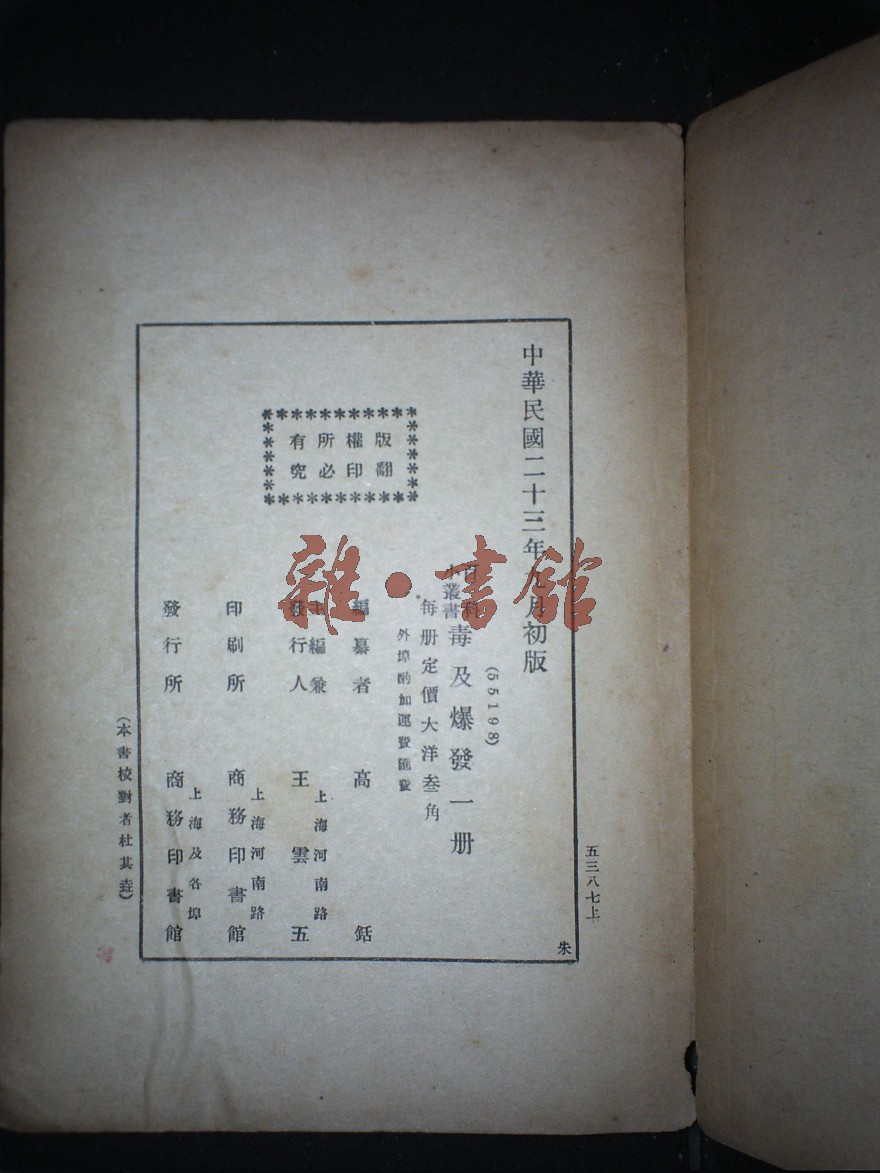 中華民國二十三年九月初版
五三八七上
朱
(55198)
百科小叢書
毒及爆發一册
每册定價大洋叁角
外埠酌加運費匯費
版權所有
翻印必究
編纂者 高銛
主編兼發行人 王雲五
上海河南路
印刷所 商務印書館
上海河南路
發行所 商務印書館
上海及各埠
(本書校對者杜其垚)
雜·書館